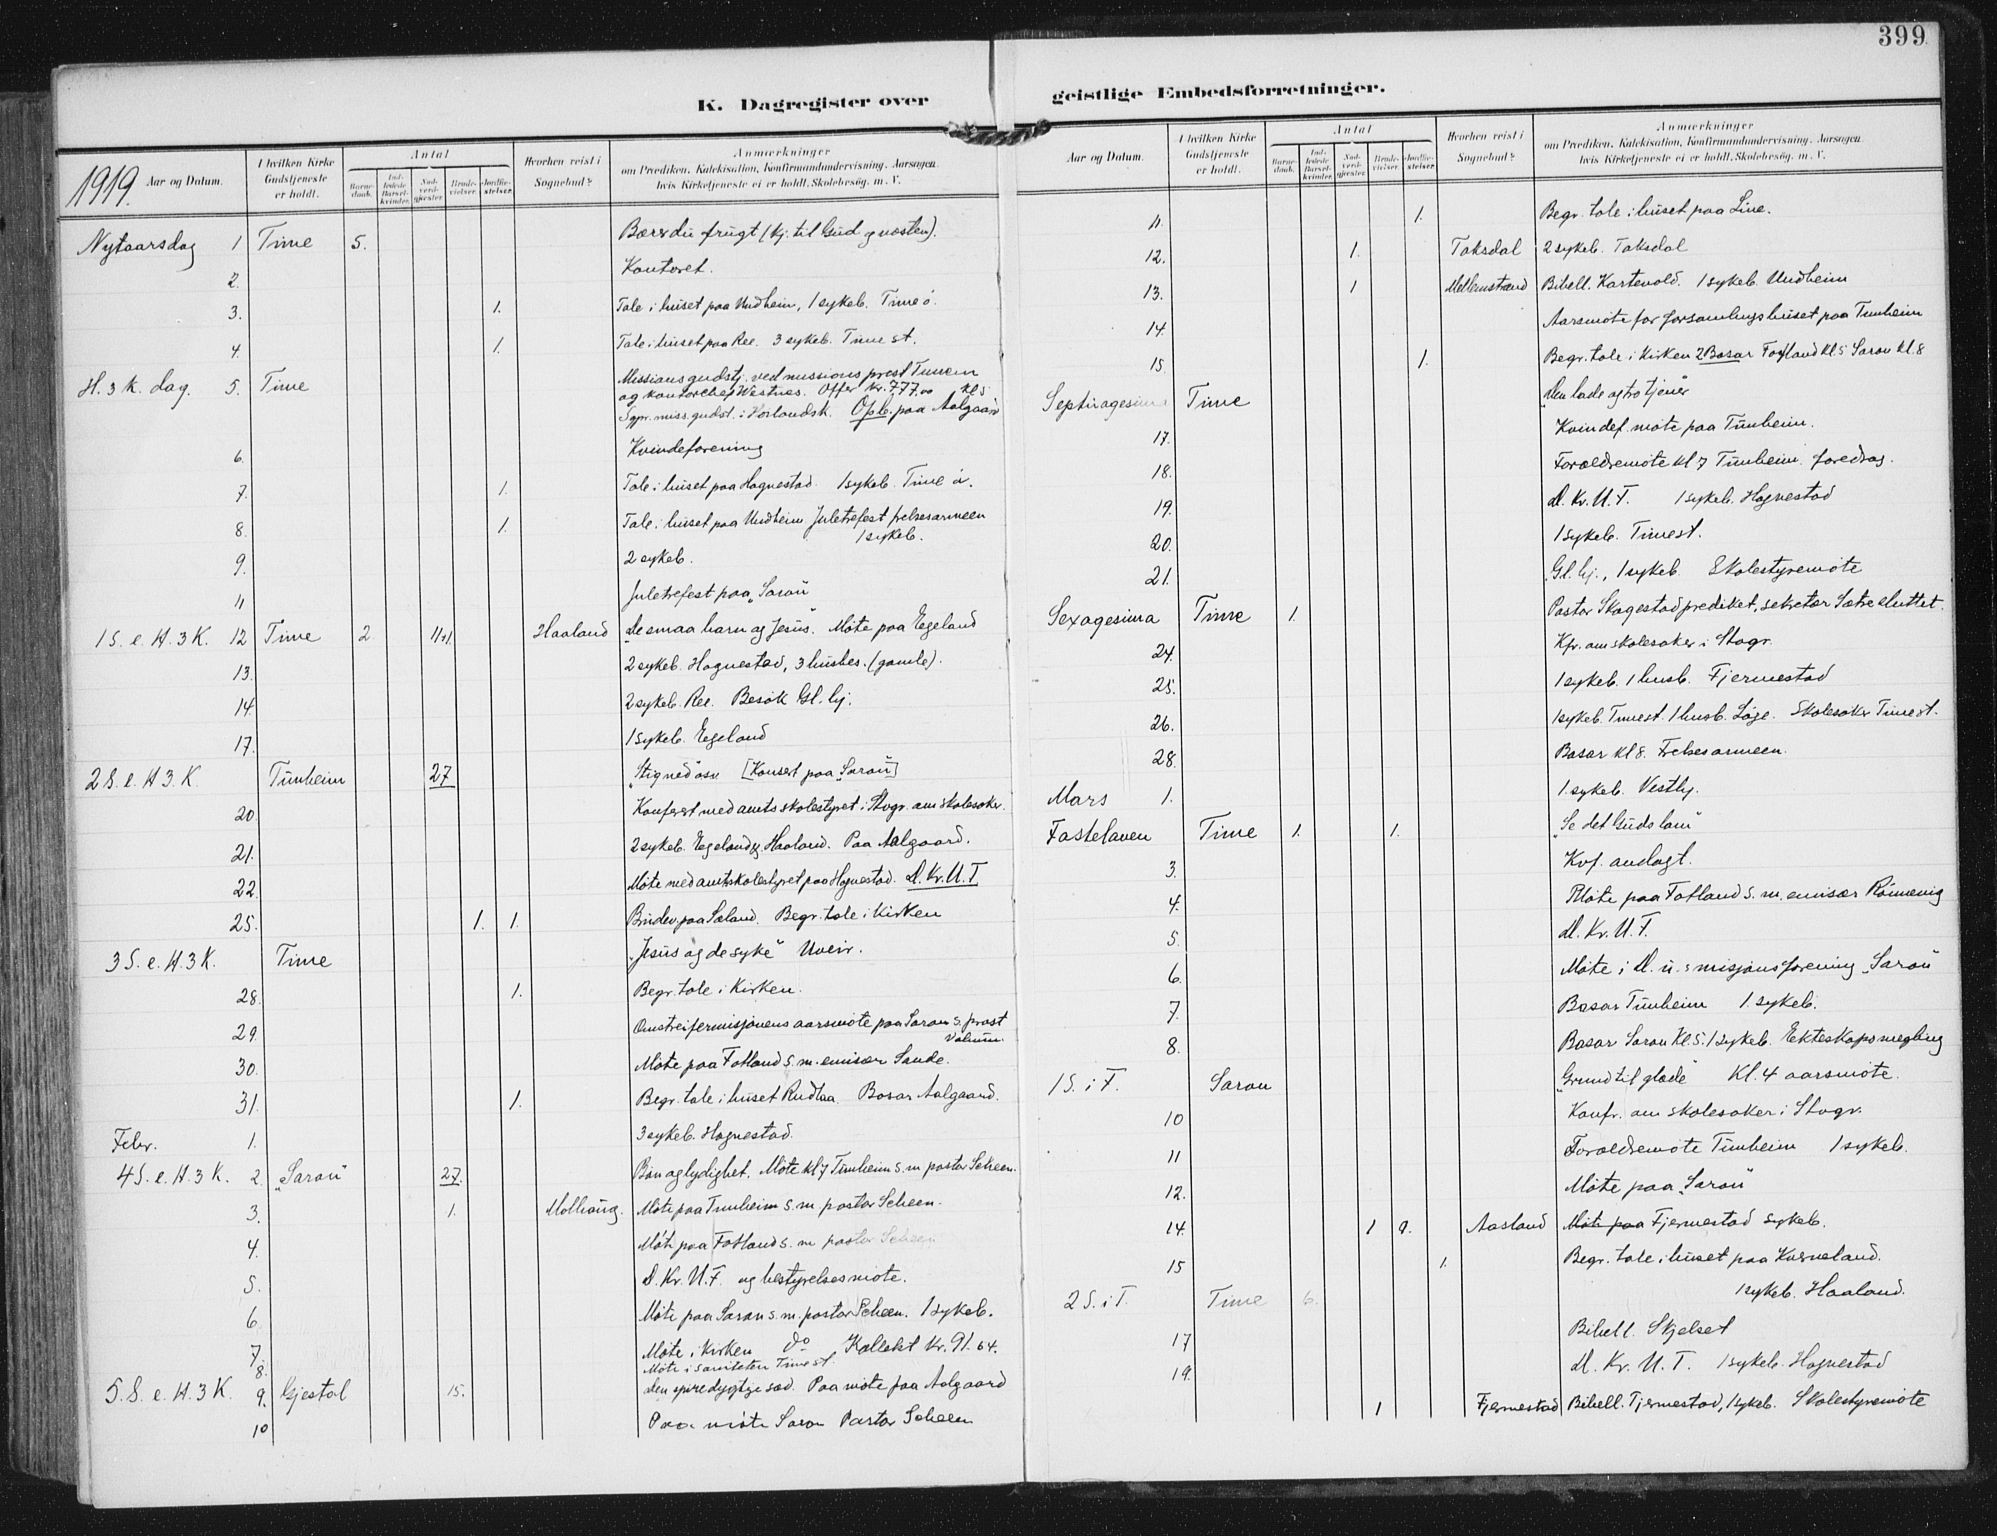 399
K. Dagregister over geistlige Embedsforretninger.
1919. Aar og Datum.
I hvilken Kirke Gudstjeneste er holdt.
Antal
Barnedaab.
Indledede Barselkvinder.
Nadverdgjester.
Brudevielser.
Jordfæstelser.
Hvorhen reist i Sognebud?
Anmærkninger
om Prædiken, Katekisation, Konfirmandundervisning, Aarsagen,
hvis Kirketjeneste ei er holdt, Skolebesøg, m. V.
Nytaarsdag 1 Time 5. Bærer du frugt (kj. til Gud og næsten).
2. Kontoret.
3. 1. Tale i huset paa Undheim, 1 sykeb. Time ø.
4. 1. Tale i huset paa Ree. 3 sykeb. Time st.
H. 3 K. dag. 5. Time Missionsgudstj. ved missionsprest Tunem
og kontorchef Westnes. Offer Kr. 777.00 Kl 5
miss. gudst. i Horlandsk. Opb. paa Aalgaard
6. Kvindeforening
7. 1. Tale i huset paa Hognestad. 1 sykeb. Time ø.
8. 1. Tale i huset paa Undheim Juletrefest frelsesarmeen
1 sykeb.
9. 2 sykeb.
11 Juletrefest paa "Saron"
1 S. e. H. 3 K. 12 Time 2 11+1 Haaland "De smaa barn og Jesus". Møte paa Egeland
13. 2 sykeb. Hognestad, 3 husbes. (gamle).
14. 2 sykeb. Ree. Besøk Gl. hj.
17. 1 sykeb. Egeland
2 S. e. H. 3 K. Tunheim 27 "Stig ned" osv [Konsert paa "Saron"]
20. Konferet med amtsskolestyret i Stvgr. om skolesaker.
21. 2 sykeb. Egeland og Haaland. Paa Aalgaard.
22. Møte med amtskolestyret paa Hognestad. D. Kr. U. F
25. 1. 1. Brudev. paa Sæland. Begr. tale i Kirken
3 S. e. H. 3 K. Time "Jesus og de syke" Uveir.
28. 1. Begr. tale i Kirken.
29. Omstreifermisjonens aarsmøte paa Saron s. prost
Valum.
30. Møte paa Fotland s. m. emisær Sande.
31. 1. Begr. tale i huset Rudlaa. Basar Aalgaard.
Febr. 1. 3 sykeb. Hognestad.
4 S. e. H. 3 K. 2. "Saron" 27. Bøn og lydighet. Møte Kl 7 Tunheim s. m pastor Scheen.
3. 1. Molhaug. Møte paa Tunheim s. m pastor Scheen.
4. Møte paa Fotland s. m pastor Scheen
5. D. Kr. U. F. og bestyrelsesmøte.
6. Møte paa Saron s. m. pastor Scheen. 1 sykeb.
7 Møte i Kirken do Kollekt Kr. 91.64.
8. Møte i saniteten Time st.
5. S. e. H. 3 K. 9. Gjestal 15. Den spiredygtige sæd. Paa møte paa Aalgaard
10 Paa møte Saron Pastor Scheen
Aar og Datum.
I hvilken Kirke Gudstjeneste er holdt.
Antal
Barnedaab.
Indledede Barselkvinder.
Nadverdgjester.
Brudevielser.
Jordfæstelser.
Hvorhen reist i Sognebud?
Anmærkninger
om Prædiken, Katekisation, Konfirmandundervisning, Aarsagen,
hvis Kirketjeneste ei er holdt, Skolebesøg, m. V.
11. 1. Begr. tale i huset paa Line.
12. 1. Taksdal 2 sykeb. Taksdal
13. 1 Mellemstrand Bibell. Kartevold. 1 sykeb. Undheim
14. Aarsmøte for forsamlingshuset paa Tunheim
15. 1. Begr. tale i Kirken 2 Basar Fotland Kl 5 Saron Kl. 8
Septuagesima Time "Den lade og tro tjener"
17. Kvindef. møte paa Tunheim.
18. Forældremøte kl 7 Tunheim. foredrag.
19. D. Kr. U. F. 1 sykeb. Hognestad
20. 1 sykeb. Time st.
21. Gl. hj., 1 sykeb. Skolestyremøte
Sexagesima Time 1. Pastor Skagestad prediket, sekretær Sætre sluttet.
24. Kfr. om skolesaker i Stvgr.
25. 1 sykeb. 1 husb. Fjermestad
26. 1 sykeb. Time st. 1 husb. Løge. Skolesaker Time st.
28. Basar kl 8. Frelsesarmeen.
Mars 1. 1. sykeb. Vestly.
Fastelaven Time 1. 1. "Se det Guds lam"
3. Kvf. andagt.
4. Møte paa Fotland s. m. emisær Rønnevig
5. D. Kr. U. F.
6. Møte i D. u. s misjonsforening "Saron"
7. Basar Tunheim 1. sykeb.
8. Basar Saron Kl. 5. 1 sykeb. Ekteskapsmegling
1 S. i F. Saron "Grund til glæde" Kl. 4 aarsmøte.
10 Konfr. om skolesaker i Stvgr.
11 Forældremøte Tunheim 1 sykeb.
12. Møte paa "Saron"
14. 1 9. Aasland Møte paa Fjermestad sykeb.
15 1. Begr. tale i huset paa Kverneland.
1 sykeb. Haaland.
2 S. i F. Time 6.
17 Bibell. Skjelset
19. D. Kr. U. F. 1 sykeb. Hognestad
1 Fjermestad Bibell. Fjermestad, 1 sykeb. Skolestyremøte